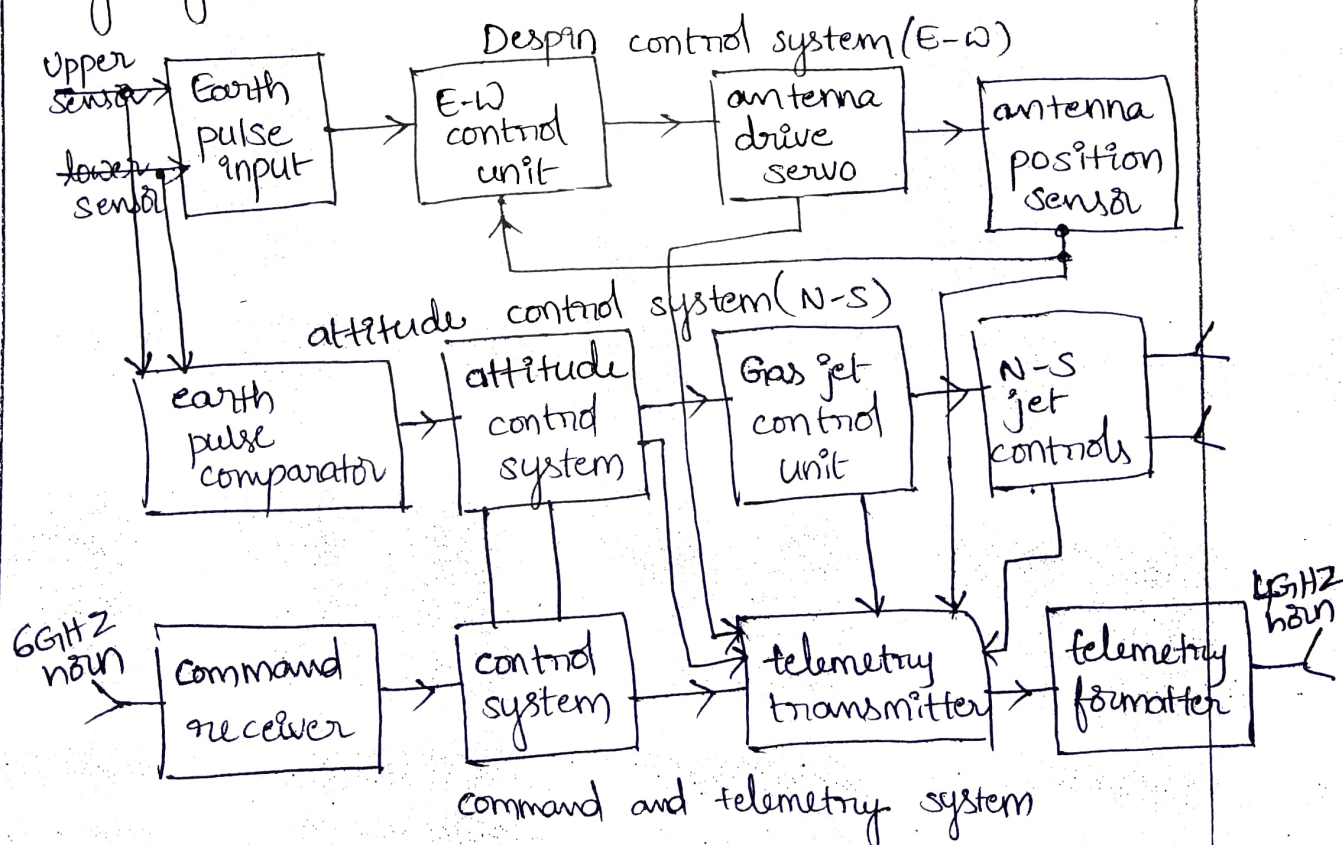 Despin control system (E-W)
Upper
sensor
lower
sensor
Earth
pulse
input
E-W
control
unit
antenna
drive
servo
antenna
position
sensor
attitude control system (N-S)
earth
pulse
comparator
attitude
control
system
Gas jet
control
unit
N-S
jet
controls
6GHZ
horn
command
receiver
control
system
telemetry
transmitter
telemetry
formatter
4GHZ
horn
command and telemetry system